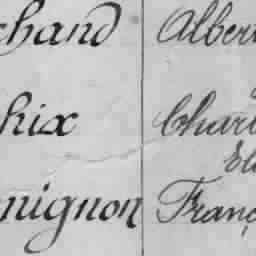 chand Alber
hix Charl
Ela
nignon Franç